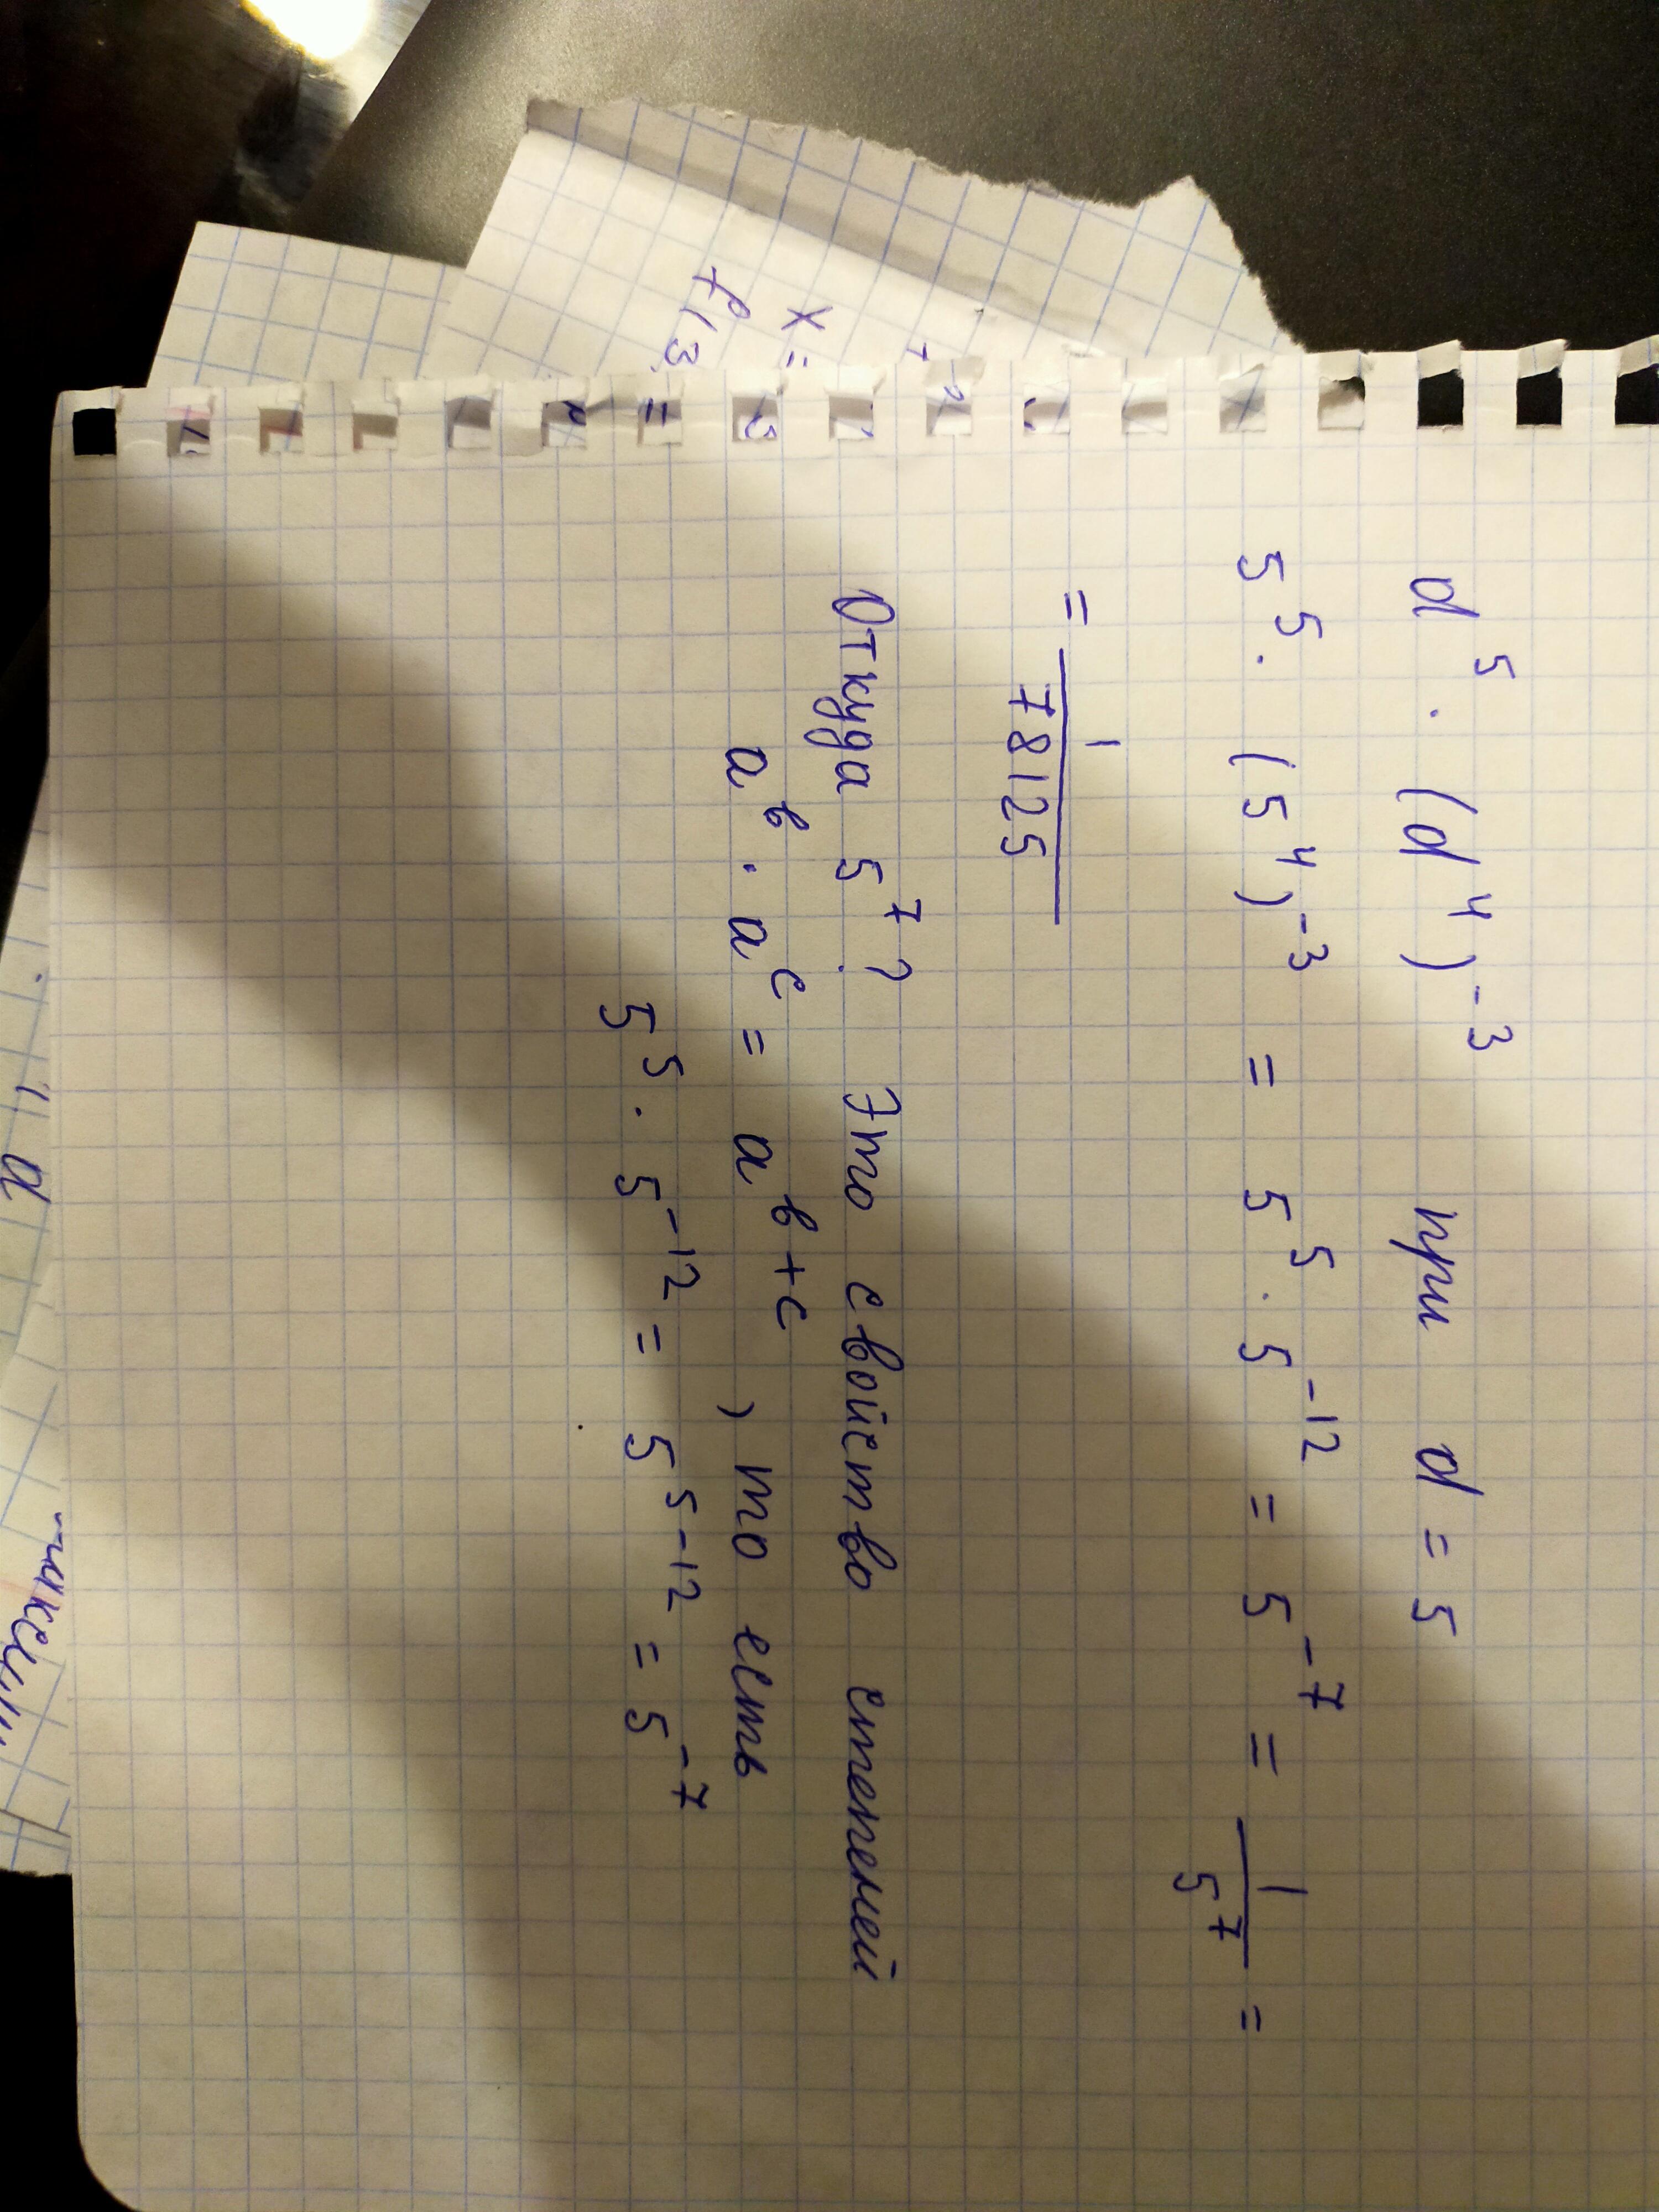 d⁵ · (d⁴)⁻³ при d = 5
5⁵ · (5⁴)⁻³ = 5⁵ · 5⁻¹² = 5⁻⁷ = 1/5⁷ =
= 1/78125
Откуда 5⁷? Это свойство степеней
aᵇ · aᶜ = aᵇ⁺ᶜ, то есть
5⁵ · 5⁻¹² = 5⁵⁻¹² = 5⁻⁷
x =